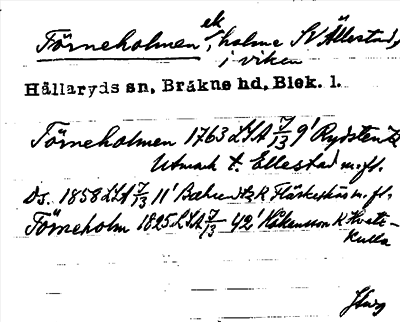 Törneholmen ek, holme SV Ällestad,
i viken
Hällaryds sn, Bräkne hd, Blek. l.
Törneholmen 1763 LSA 7/13 9' Rydstentz
Utmark t. Ellestad m.fl.
Ds. 1858 LSA 7/13 11' Bahrendtz K Fläskesjös m.fl.
Törneholm 1825 LSA 7/13 42' Håkansson K Kvate-
kulla